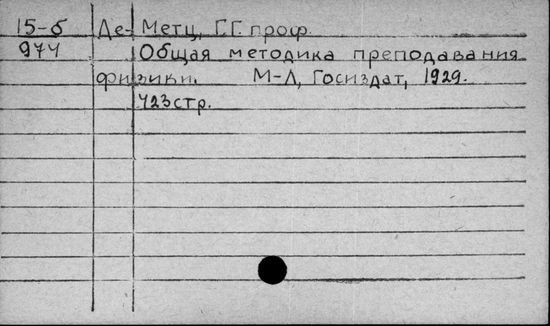 15-б Де-Метц, Г.Г. проф.
974 Общая методика преподавания
физики. М-Л, Госиздат, 1929.
423 стр.